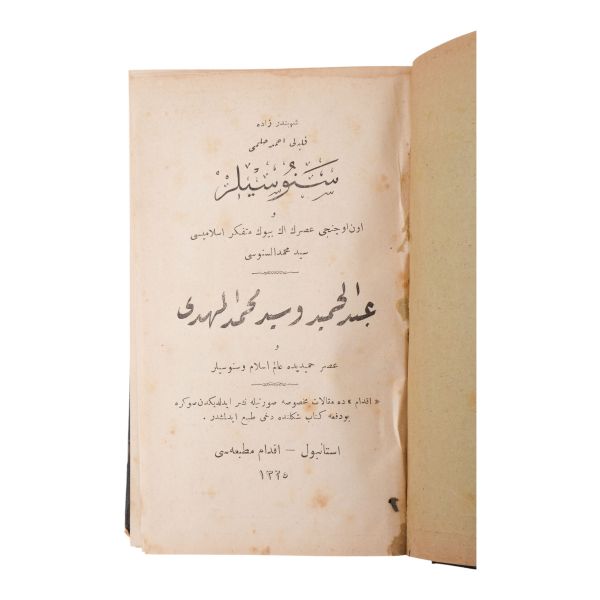 شهبندر زاده
فلبه‌لی احمد حلمی
سَنُوسِیْلِر
و
اون اوچنجی عصرك اك بیوك متفكر اسلامیسی
سید محمد السنوسی
عبد الحمید و سید محمد المهدی
و
عصر حمیدیده عالم اسلام و سنوسیلر
« اقدام » ده مقالات مخصوصه صورتیله نشر ایدلدیكدن سوكره
بودفعه كتاب شكلنده دخی طبع ایدلمشدر .
استانبول — اقدام مطبعه‌سی
١٣٢٥